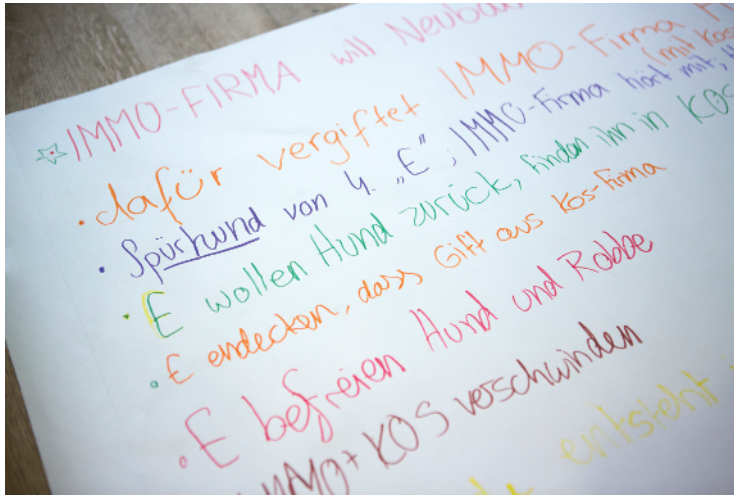 ☆ IMMO-FIRMA will Neubau
• dafür vergiftet IMMO-Firma F
(mit Kos
• Spürhund von 4. "E"; IMMO-Firma hört mit,
• E wollen Hund zurück, finden ihn in KOS
• E endecken, dass Gift aus Kos-Firma
• E befreien Hund und Robbe
IMMO+KOS verschwinden
entsteht